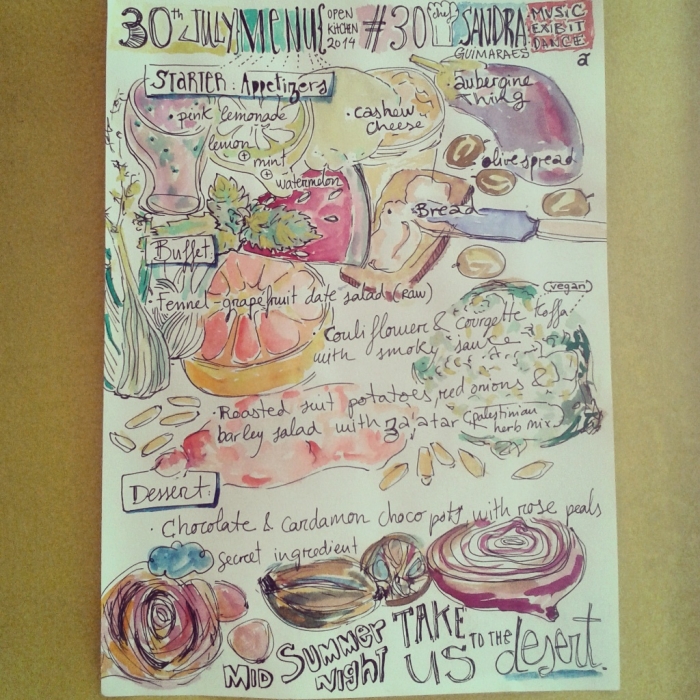 30th JULY MENU OPEN KITCHEN 2014 #30 chef SANDRA GUIMARAES MUSIC EXIBIT DANCE
a
STARTER: Appetizers
· pink lemonade
lemon
+ mint
+ watermelon
· cashew cheese
aubergine thing
olive spread
Bread
Buffet
· Fennel-grapefruit date salad (raw)
vegan
· Couliflower & courgette Kofta
with smoky sauce
· Roasted suit potatoes red onions &
barley salad with za'atar (palestinian herb mix)
Dessert:
· Chocolate & Cardamon choco pots with rose peals
secret ingredient
MID SUMMER NIGHT TAKE US TO THE desert.